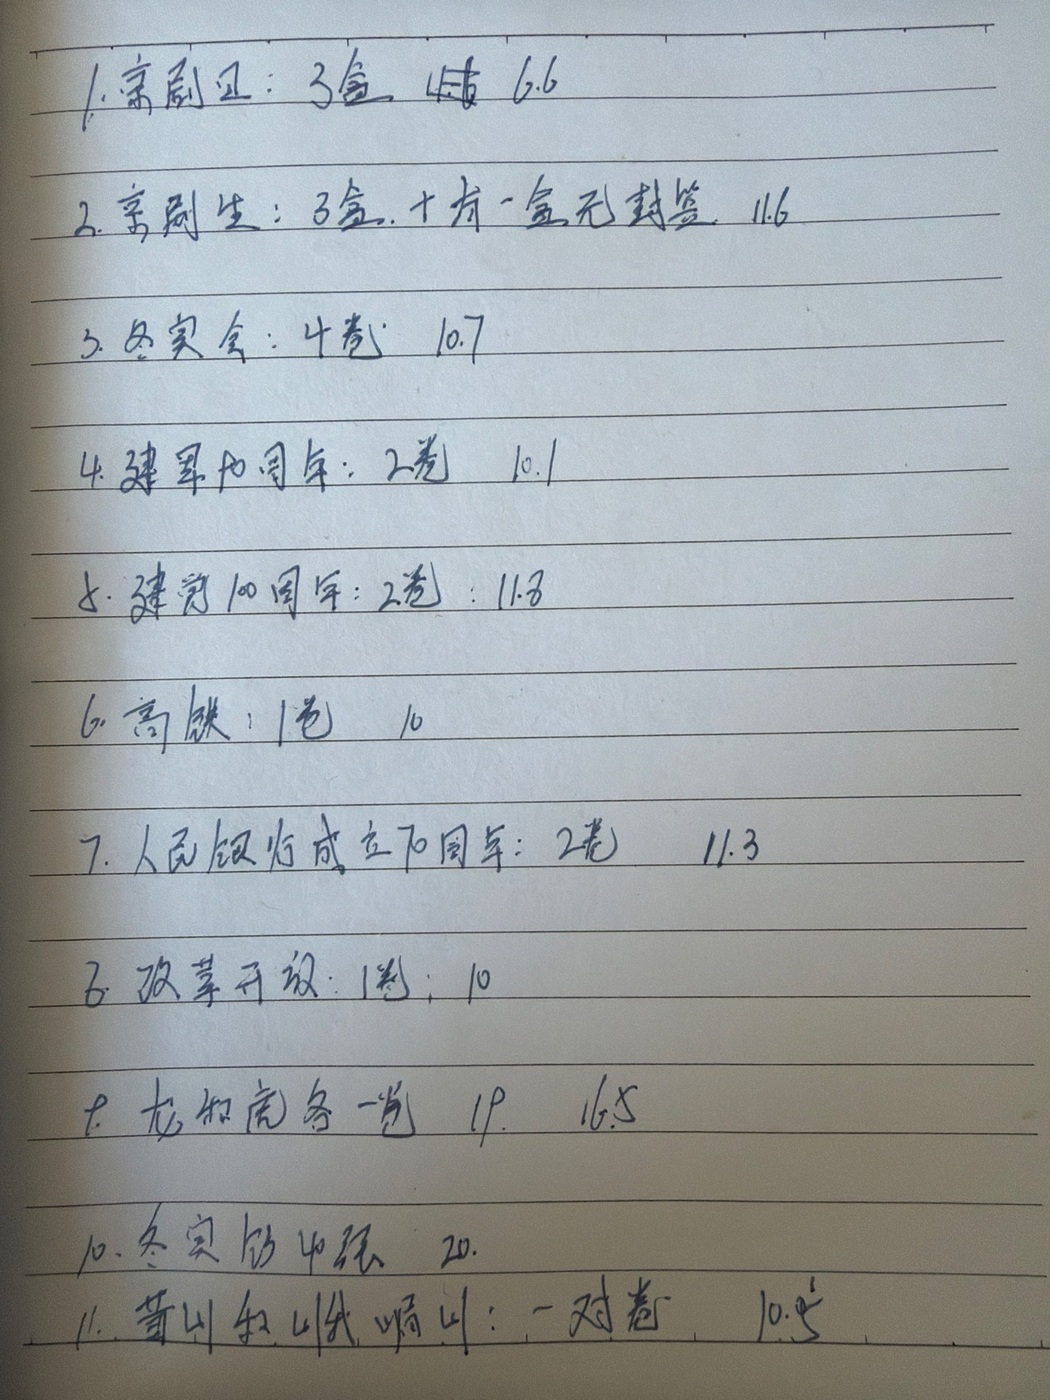 1. 京剧丑: 3盒 6.6
2. 京剧生: 3盒. 十有一盒无封签 11.6
3. 冬奥会: 4卷 10.7
4. 建军90周年: 2卷 10.1
5. 建党100周年: 2卷: 11.3
6. 高铁: 1卷 10
7. 人民银行成立70周年: 2卷 11.3
8. 改革开放: 1卷: 10
9. 龙和虎各一卷 19. 16.5
10. 冬奥钞40张 20.
11. 黄山和峨嵋山: 一对卷